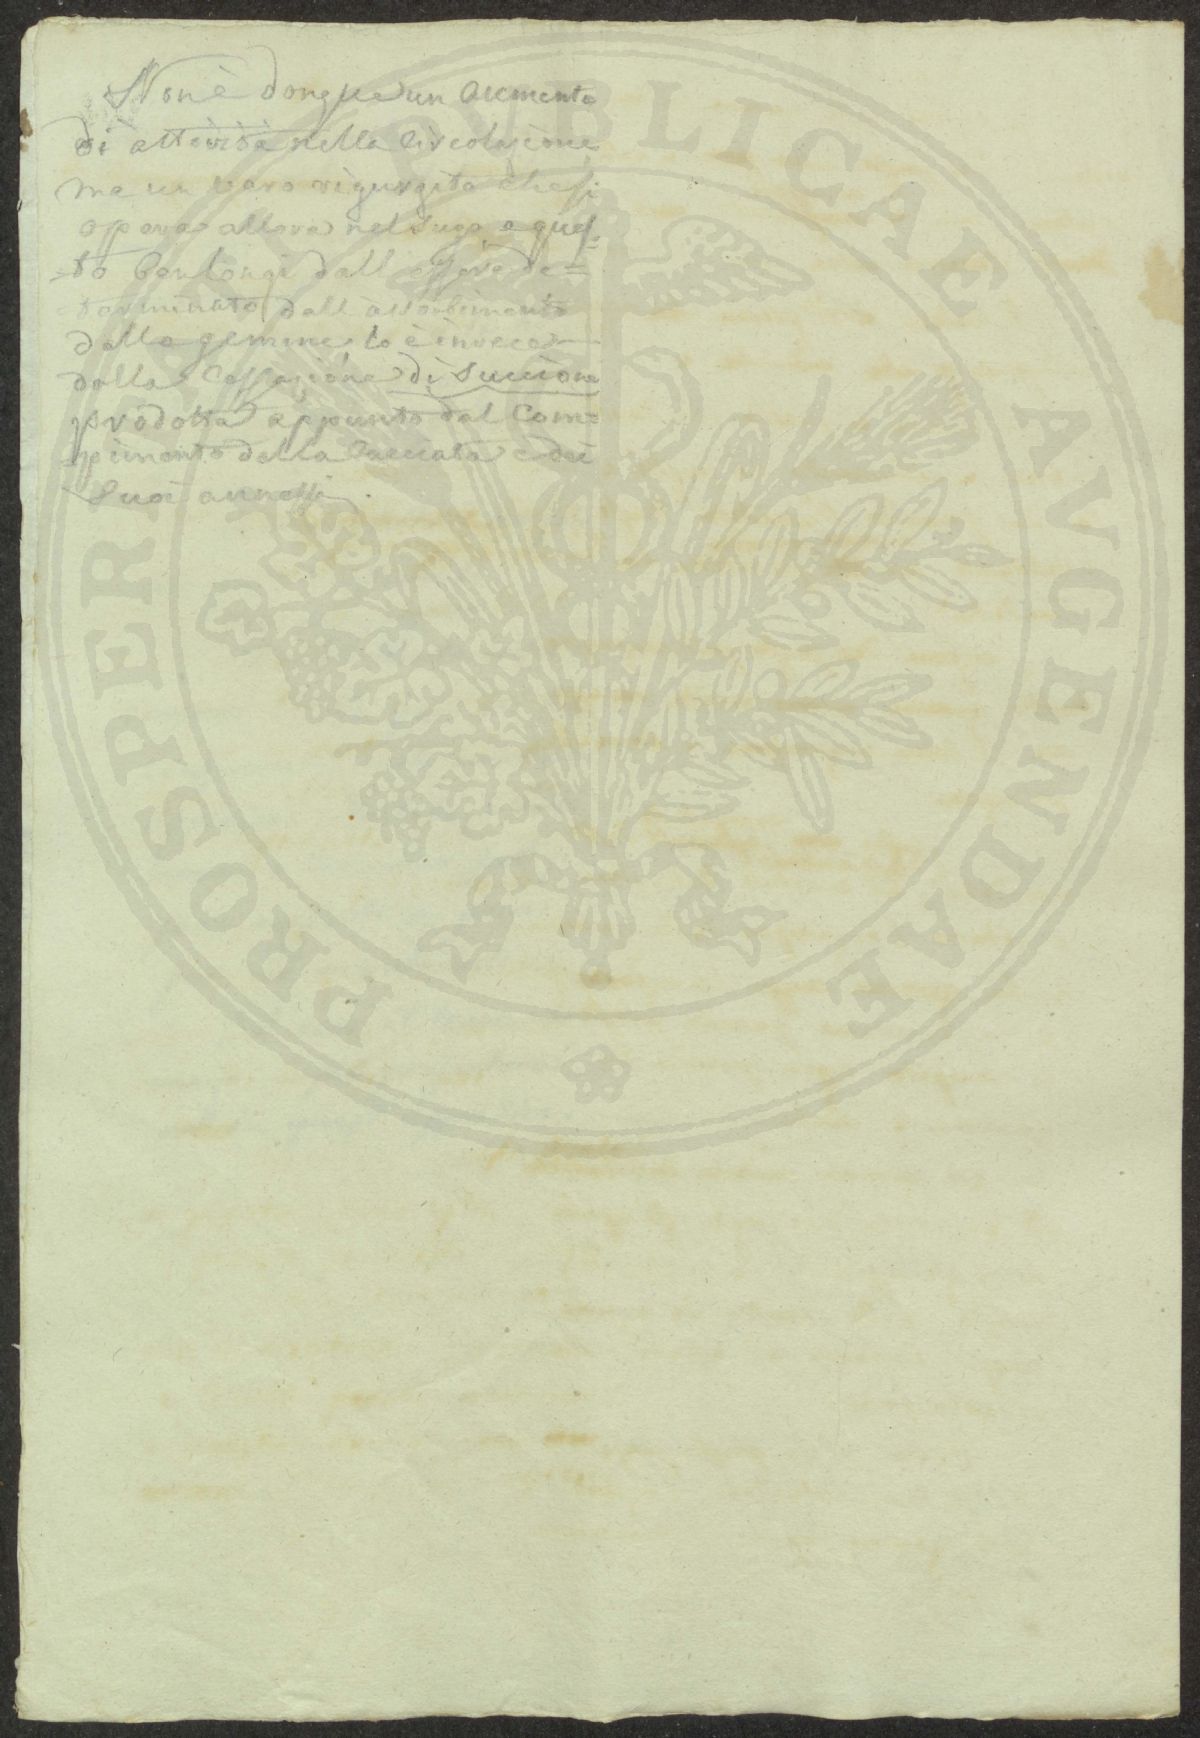 Non è donque un aumento
di attività nella circolazione
ma un vero rigurgito che si
opera allora nel sugo e ques=
to ben longi dall'essere de=
terminato dall'assorbimento
delle gemme lo è invece
dalla cessazione di succione
prodotta appunto dal com=
pimento della cacciata e dei
suoi annessi.
PROSPERITATI PUBLICAE AVGENDAE